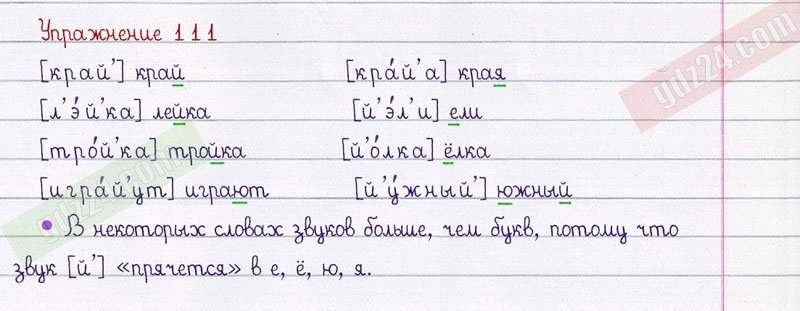 Упражнение 111
[край’] край [кра́й’а] края
[л’э́й’ка] лейка [й’э́л’и] ели
[тро́й’ка] тройка [й’о́лка] ёлка
[игра́й’ут] играют [й’у́жный’] южный
• В некоторых словах звуков больше, чем букв, потому что
звук [й’] «прячется» в е, ё, ю, я.
gdz24.com
gdz24.com